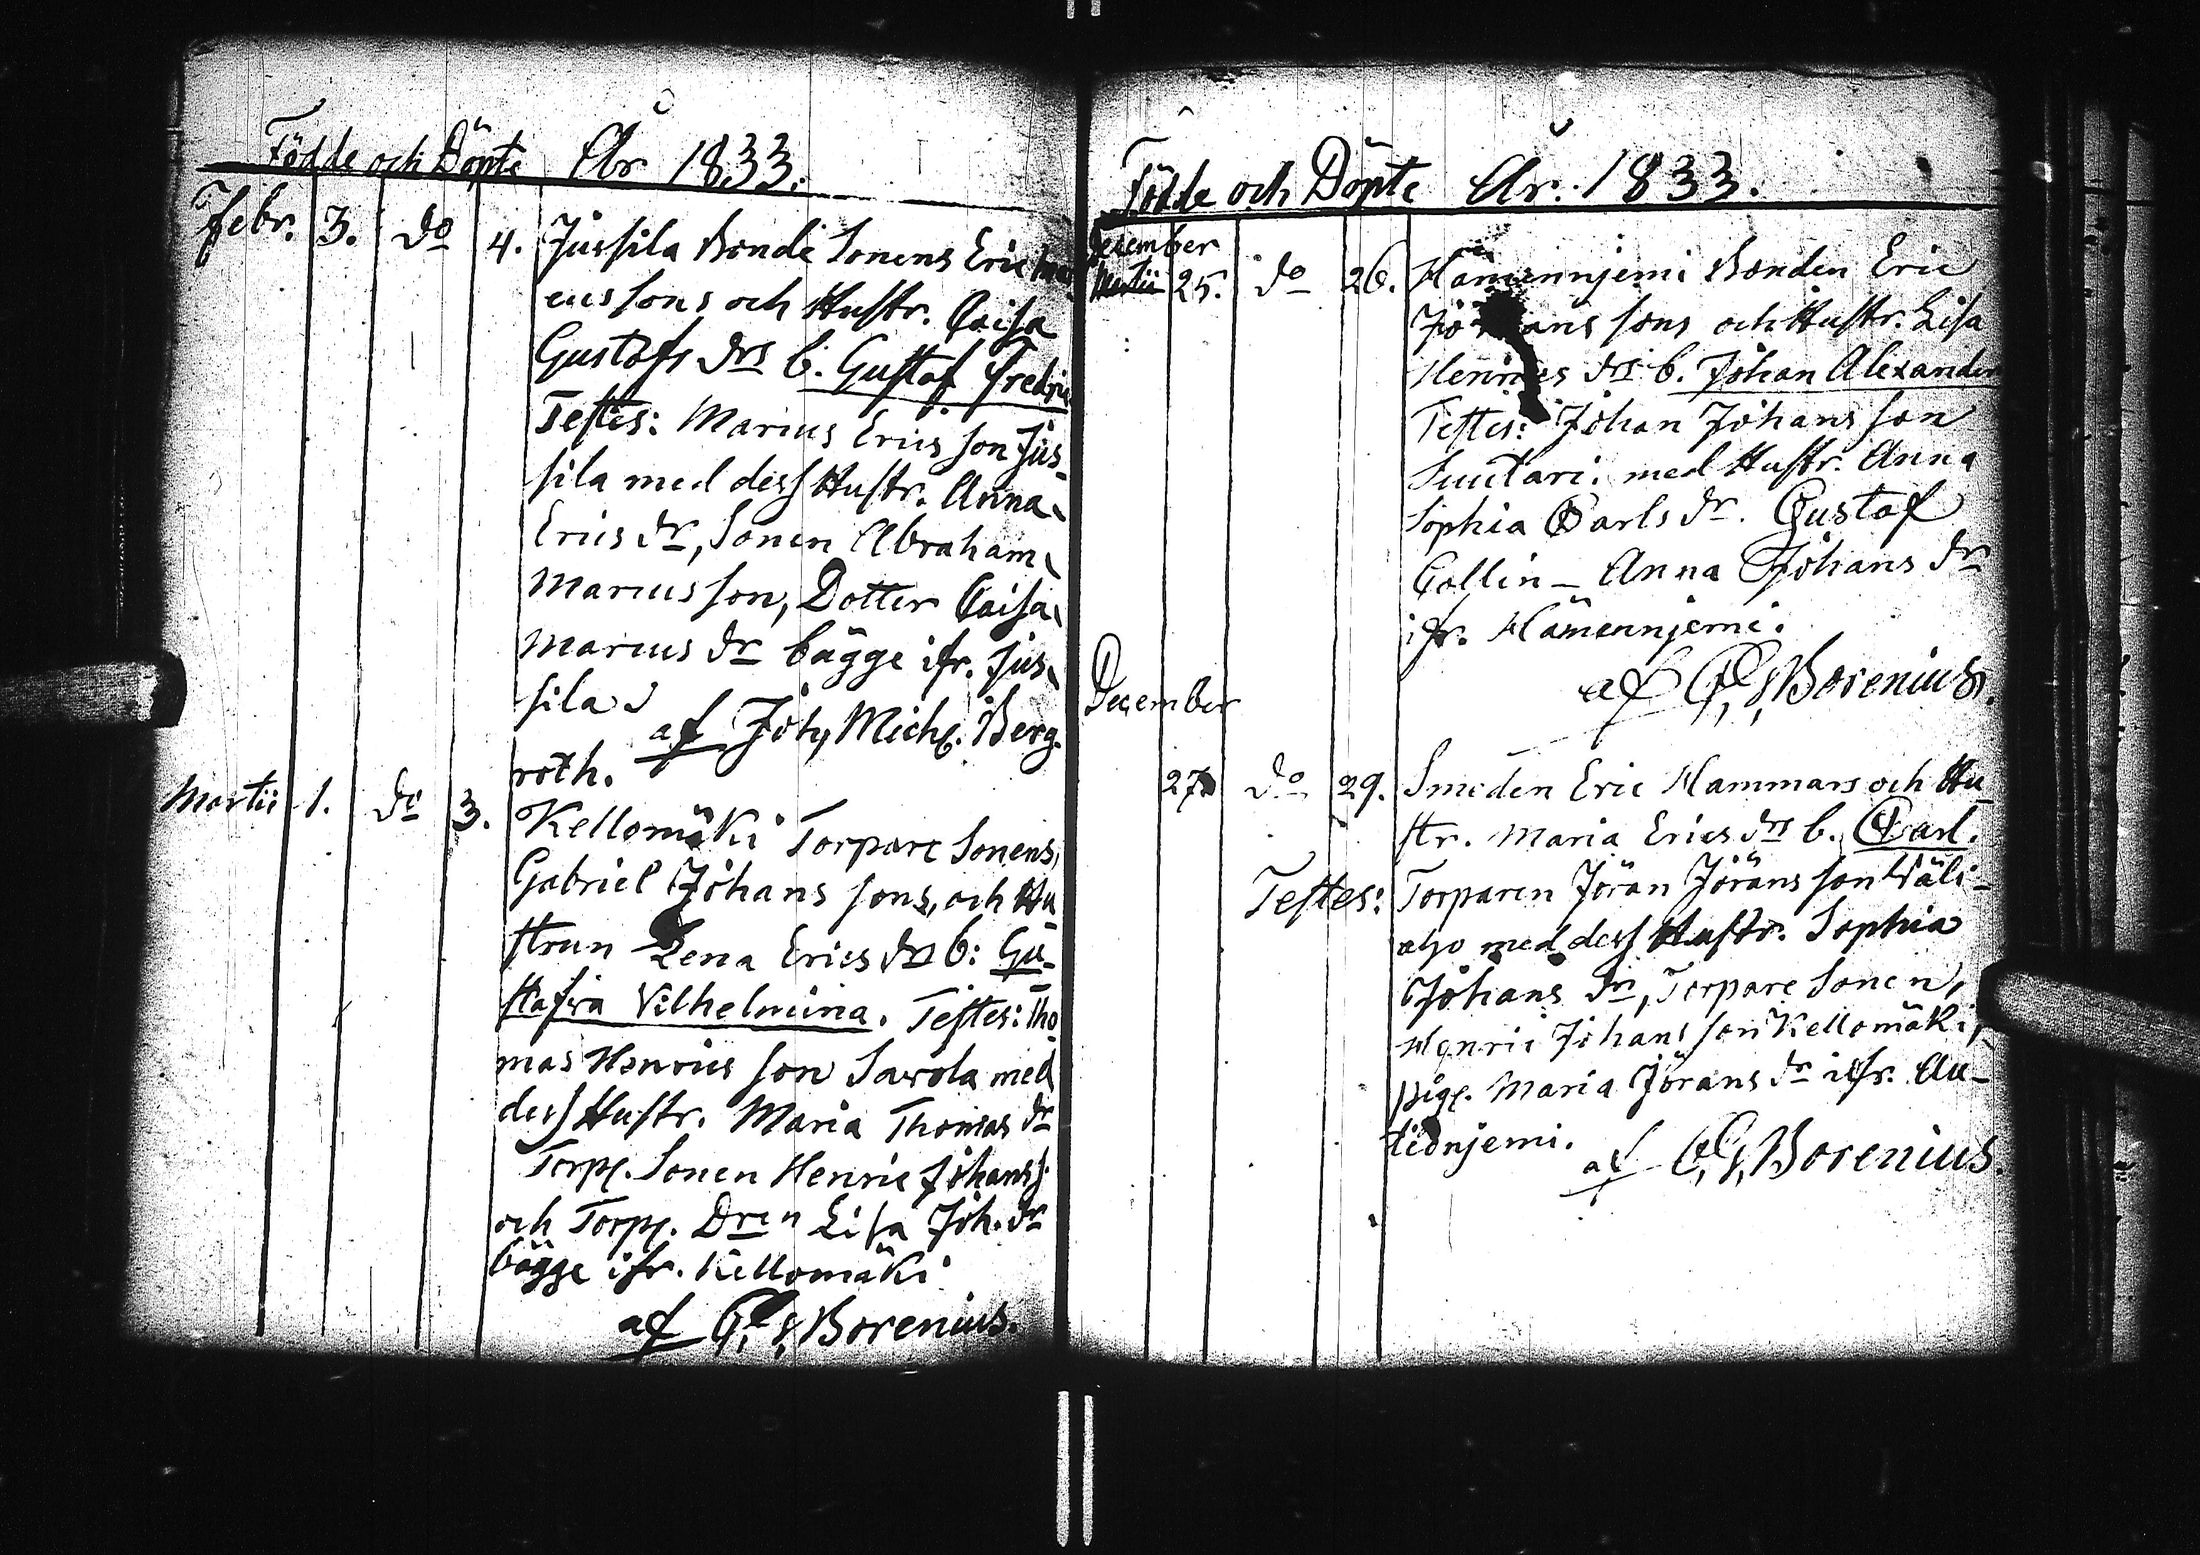 Födde och Döpte År 1833.
Febr. 3. do 4. Jussila Bonde Sonens Eric Mar
cussons och Hustr. Caisa
Gustafs drs b. Gustaf Fredric
Testes: Marcus Erics son Jus-
sila med dess Hustr. Anna
Erics dr, Sonen Abraham
Marcus son, Dotter Caisa
Marcus dr bägge ifr. Jus
sila
af Joh, Mich. Berg.
roth.
Martii 1. do 3. Kellomäki Torpare Sonens,
Gabriel Johans sons, och Hu
strun Lena Erics drs b: Gu-
stafva Vilhelmina. Testes: Tho
mas Henrics son Savola med
dess Hustr. Maria Thomas dr
Torp. Sonen Henric Johanss.
och Torp. Dren Lisa Joh. dr
bägge ifr. Kellomäki
af G, Borenius.
Födde och Döpte År. 1833.
December
Martii 25. do 26. Hämennjemi Bonden Eric
Johans sons och Hustr. Lisa
Henrics drs b. Johan Alexander
Testes: Johan Johans son
Suutari. med Hustr. Anna
Sophia Carls dr. Gustaf
Collin – Anna Johans dr
ifr. Hämennjemi.
af G, Borenius.
December
27 do 29. Smeden Eric Hammars och Hu
str. Maria Erics drs b. Carl.
Testes: Torparen Jöran Jörans son Wäli-
aho med dess Hustr. Sophia
Johans dr, Torpare Sonen,
Henric Johans son Kellomäki,
pig. Maria Jörans dr ifr. Au-
tionjemi.
af G, Borenius.